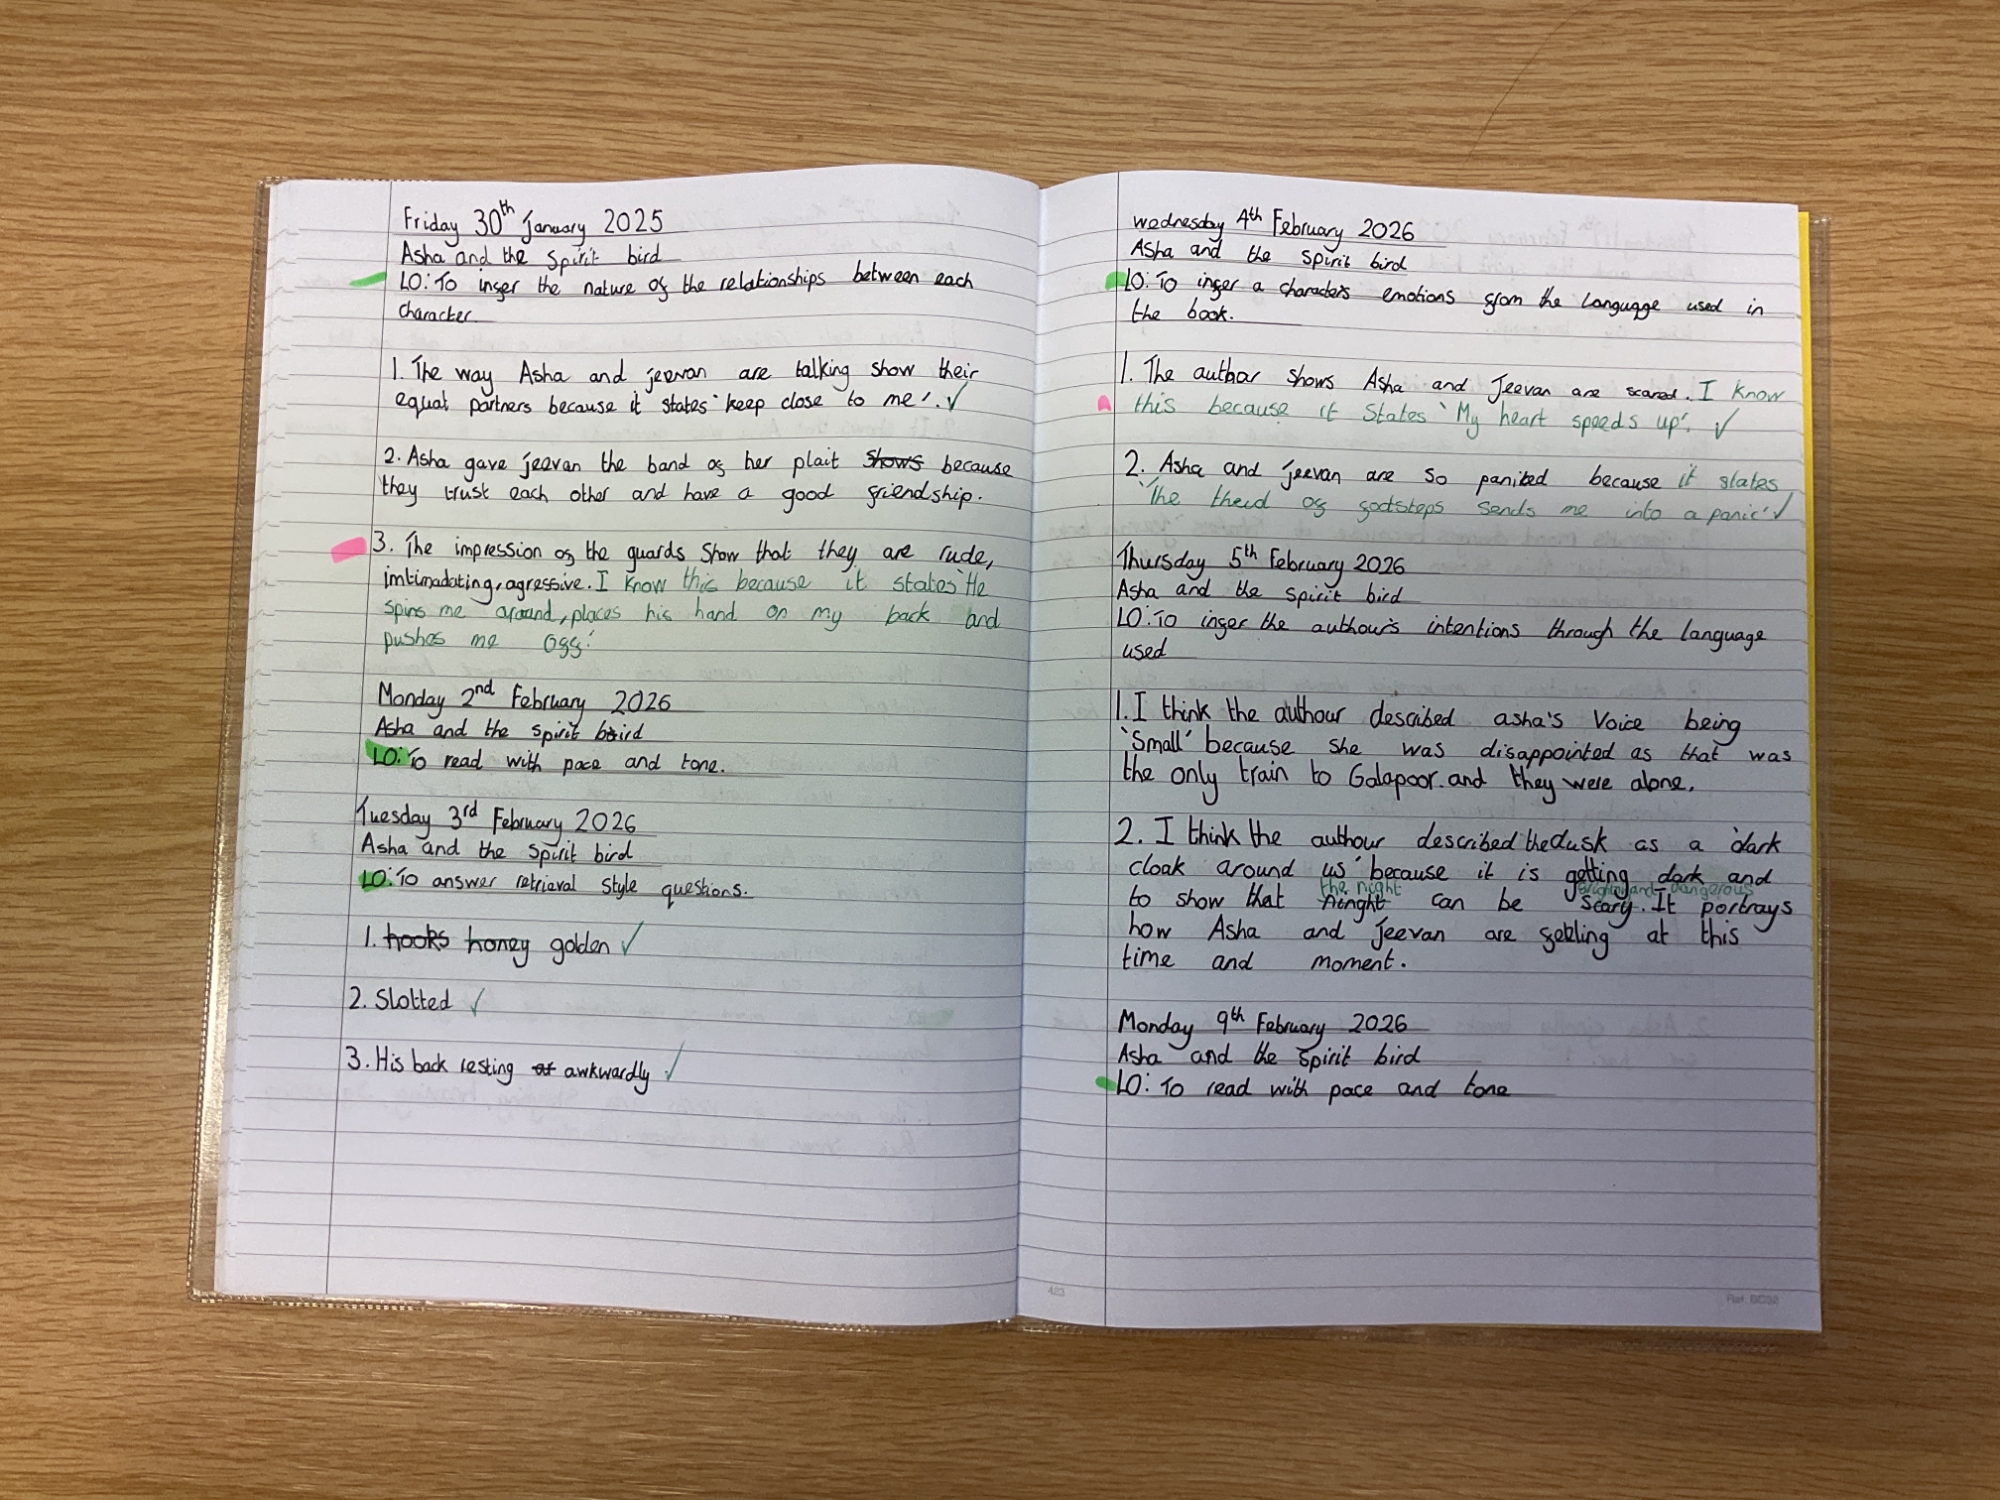 Friday 30th January 2025
Asha and the Spirit bird
LO: To inger the nature og the relationships between each
character.
1. The way Asha and jeevan are talking show their
equal partners because it states 'keep close to me'. ✓
2. Asha gave jeevan the band og her plait shows because
they trust each other and have a good griendship.
3. The impression og the guards Show that they are rude,
imtimadating, agressive. I know this because it states 'He
spins me around, places his hand on my back and
pushes me ogg'.
Monday 2nd February 2026
Asha and the spirit baird
LO: To read with pace and tone.
Tuesday 3rd February 2026
Asha and the spirit bird
LO: To answer retrieval style questions.
1. hooks honey golden ✓
2. Slotted ✓
3. His back resting at awkwardly ✓
wednesday 4th February 2026
Asha and the spirit bird
LO: To inger a characters emotions grom the language used in
the book.
1. The author shows Asha and Jeevan are scared. I know
this because it States 'My heart speeds up'. ✓
2. Asha and jeevan are so panited because it states
'The theud og gootsteps sends me into a panic' ✓
Thursday 5th February 2026
Asha and the spirit bird
LO: To inger the authour's intentions through the language
used
1. I think the authour described asha's Voice being
'Small' because she was disappointed as that was
the only train to Galapoor. and they were alone.
2. I think the authour described the dusk as a 'dark
cloak around us' because it is getting dark and
the night and dangerous
to show that ninght can be scary. It portrays
how Asha and Jeevan are geeling at this
time and moment.
Monday 9th February 2026
Asha and the spirit bird
LO: To read with pace and tone
423